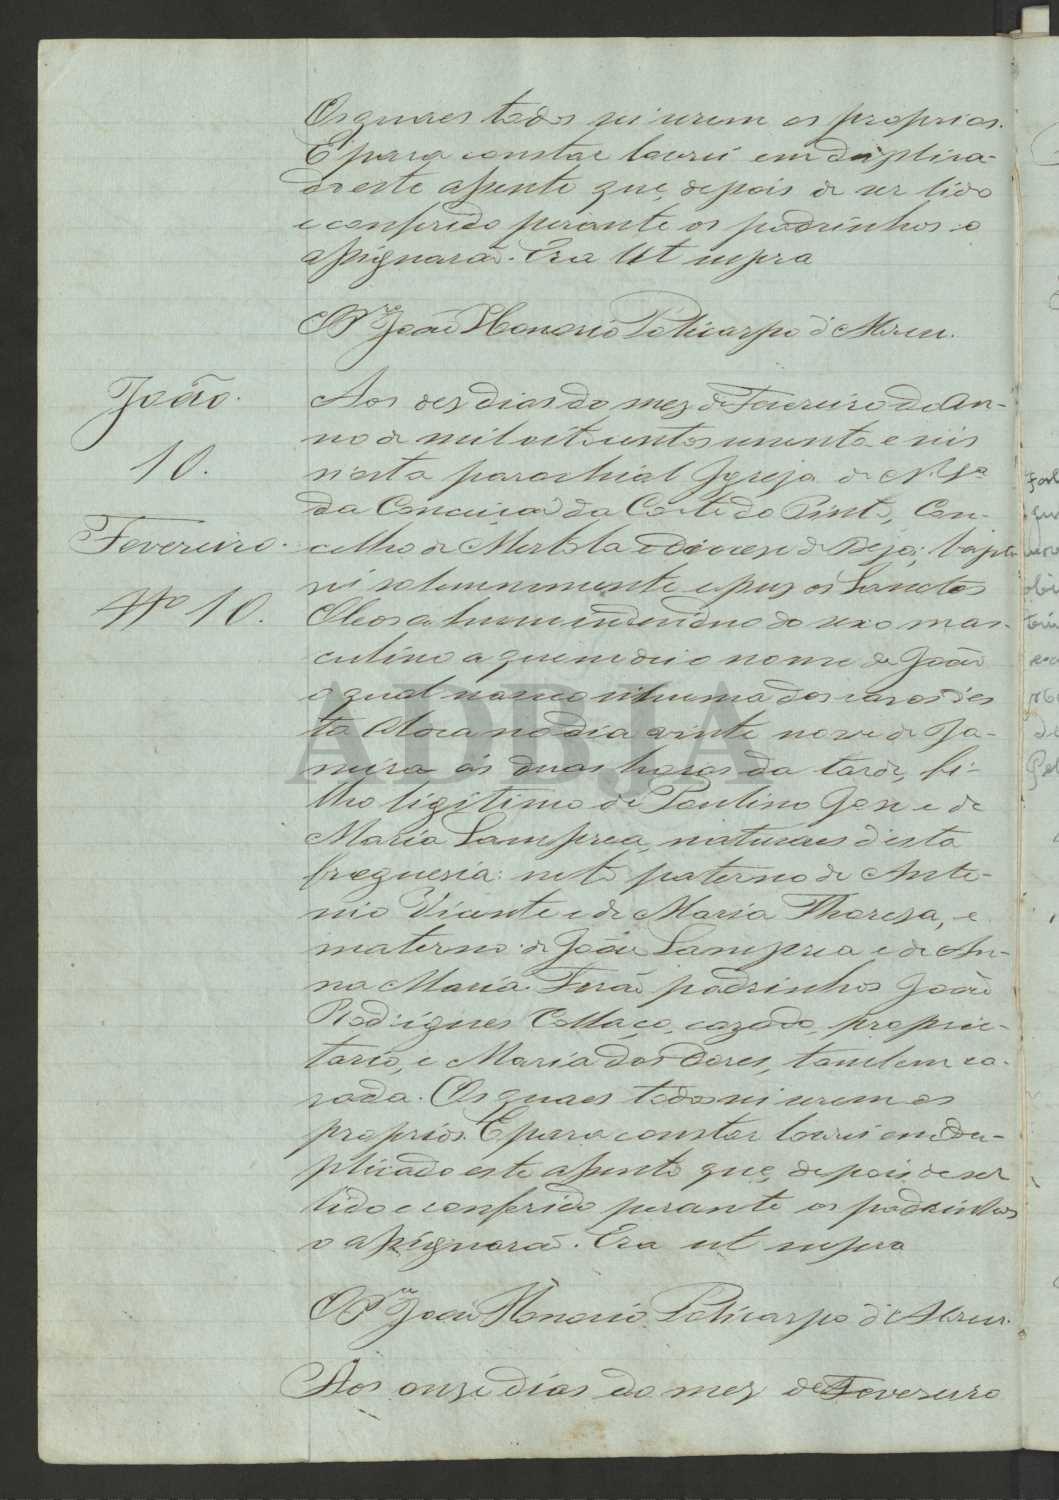 Os quaes todos sei serem os proprios.
E para constar lavrei em duplica-
do este assento que, depois de ser lido
e conferido perante os padrinhos o
assignarão. Era Ut supra
O P.re João Honorio Policarpo d'Abreu.
João.
10.
Fevereiro.
Nº 10.
Aos dez dias do mez de Fevereiro do an-
no de mil oitocentos oitenta e seis
n'esta parochial Igreja de N. Sª
da Conceição da Corte do Pinto, Con-
celho de Mertola e Diocese de Beja; bapti-
sei solemnemente e puz os Sanctos
Oleos a hum individuo do sexo mas-
culino a quem dei o nome de João
o qual nasceu em huma das casas d'es-
ta Aldea no dia vinte nove de Ja-
neiro ás duas horas da tarde, fi-
lho legitimo de Paulino José e de
Maria Lamprea, naturaes d'esta
freguesia: neto paterno de Anto-
nio Vicente e de Maria Thereza, e
materno de João Lamprea e de An-
na Maria. Forão padrinhos João
Rodrigues Collaço, cazado, proprie-
tario, e Maria das Dores, tambem ca-
zada. Os quaes todos sei serem os
proprios. E para constar lavrei em du-
plicado este assento que, depois de ser
lido e conferido perante os padrinhos
o assignarão. Era ut supra
O P.re João Honorio Policarpo d'Abreu.
Aos onze dias do mez de Fevereiro
ADBJA